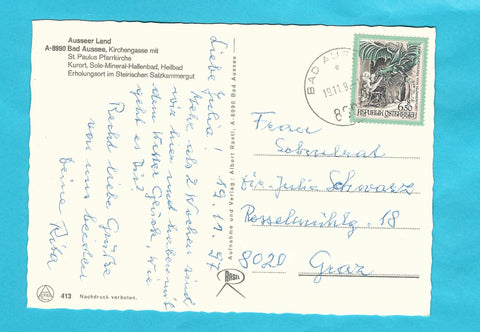 Ausseer Land
A-8990 Bad Aussee, Kirchengasse mit
St. Paulus Pfarrkirche
Kurort, Sole-Mineral-Hallenbad, Heilbad
Erholungsort im Steirischen Salzkammergut
Liebe Julia! 19.11.97
Mehr als 2 Wochen sind
wir hier und haben mit
dem Wetter Glück, wie
geht es Dir?
Recht liebe Grüße
von uns
Deine Rita
413 Nachdruck verboten.
Aufnahme und Verlag: Albert Rastl, A-8990 Bad Aussee
BAD AUS
19.11.9
6.50
REPUBLIK ÖSTERREICH
Frau
Schulrat
Dir. Julia Schwarz
Resselmühlg. 18
8020 Graz